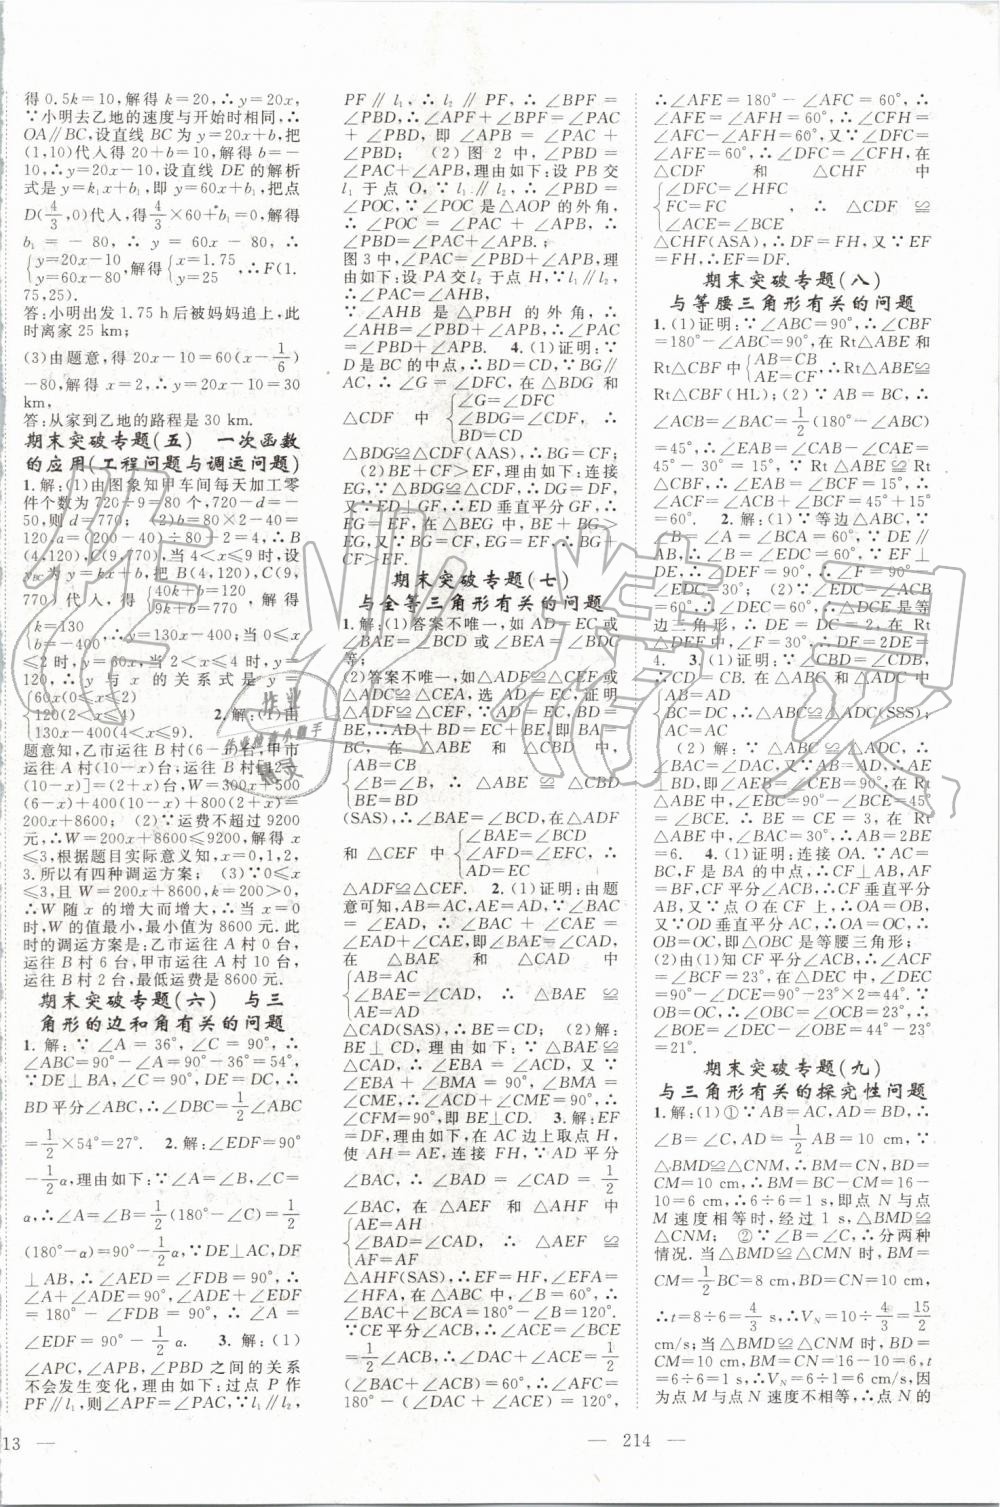 得0.5k=10,解得k=20,∴y=20x,
∵小明去乙地的速度与开始时相同,∴
OA∥BC,设直线BC为y=20x+b,把
(1,10)代入得20+b=10,解得b=-
10,∴y=20x-10,设直线DE的解析
式是y=k₁x+b₁,即y=60x+b₁,把点
D(4/3,0)代入,得4/3×60+b₁=0,解得
b₁=-80,∴y=60x-80,∴
{y=20x-10 y=60x-80,解得{x=1.75 y=25,∴F(1.
75,25).
答:小明出发1.75 h后被妈妈追上,此
时离家25 km;
(3)由题意,得20x-10=60(x-1/6)
-80,解得x=2,∴y=20x-10=30
km,
答:从家到乙地的路程是30 km.
期末突破专题(五) 一次函数
的应用(工程问题与调运问题)
1.解:(1)由图象知甲车间每天加工零
件个数为720÷9=80个,720-d=-
50,则d=770; (2)b=80×2-40=
120,a=(200-40)÷80-2=4,∴B
(4,120),C(9,770),当4<x≤9时,设
y_BC=kx+b,把B(4,120),C(9,
770)代入,得{4k+b=120 9k+b=770,解得
{k=130 b=-400,∴y=130x-400;当0≤x
≤2时,y=60x,当2<x≤4时,y=
120,∴y与x的关系式是y=
{60x(0≤x≤2) 120(2<x≤4) 130x-400(4<x≤9). 2.解:(1)由
题意知,乙市运往B村(6-x)台,甲市
运往A村(10-x)台,运往B村[12-
(10-x)]=(2+x)台,W=300x+500
(6-x)+400(10-x)+800(2+x)
=200x+8600; (2)∵运费不超过9200
元,∴W=200x+8600≤9200,解得x
≤3,根据题目实际意义知,x=0,1,2,
3.所以有四种调运方案; (3)∵0≤x
≤3,且W=200x+8600,k=200>0,
∴W随x的增大而增大,∴当x=0
时,W的值最小,最小值为8600元.此
时的调运方案是:乙市运往A村0台,
运往B村6台,甲市运往A村10台,
运往B村2台,最低运费是8600元.
期末突破专题(六) 与三
角形的边和角有关的问题
1.解:∵∠A=36°,∠C=90°,∴
∠ABC=90°-∠A=90°-36°=54°,
∵DE⊥BA,∠C=90°,DE=DC,∴
BD平分∠ABC,∴∠DBC=1/2∠ABC
=1/2×54°=27°. 2.解:∠EDF=90°
-1/2α,理由如下:∵∠A=∠B,∠C=
α,∴∠A=∠B=1/2(180°-∠C)=1/2
(180°-α)=90°-1/2α,∵DE⊥AC,DF
⊥AB,∴∠AED=∠FDB=90°,∴
∠A+∠ADE=90°,∠ADE+∠EDF
=180°-∠FDB=90°,∴∠A=
∠EDF=90°-1/2α. 3.解:(1)
∠APC,∠APB,∠PBD之间的关系
不会发生变化,理由如下:过点P作
PF∥l₁,则∠APF=∠PAC,∵l₁∥l₂,
13 —
PF∥l₁,∴l₂∥PF,∴∠BPF=
∠PBD,∴∠APF+∠BPF=∠PAC
+∠PBD,即∠APB=∠PAC+
∠PBD; (2)图2中,∠PBD=
∠PAC+∠APB,理由如下:设PB交
l₁于点O,∵l₁∥l₂,∴∠PBD=
∠POC,∵∠POC是△AOP的外角,
∴∠POC=∠PAC+∠APB,∴
∠PBD=∠PAC+∠APB.;
图3中,∠PAC=∠PBD+∠APB,理
由如下:设PA交l₂于点H,∵l₁∥l₂,
∴∠PAC=∠AHB,
∵∠AHB是△PBH的外角,∴
∠AHB=∠PBD+∠APB,∴∠PAC
=∠PBD+∠APB. 4.(1)证明:∵
D是BC的中点,∴BD=CD,∵BG∥
AC,∴∠G=∠DFC,在△BDG和
△CDF中{∠G=∠DFC ∠BDG=∠CDF,∴ BD=CD
△BDG≌△CDF(AAS),∴BG=CF;
(2)BE+CF>EF,理由如下:连接
EG,∵△BDG≌△CDF,∴DG=DF,
又∵ED⊥GF,∴ED垂直平分GF,∴
EG=EF,在△BEG中,BE+BG>
EG,∵EG=EF,BG=CF,∴BE+
CF>EF.
期末突破专题(七)
与全等三角形有关的问题
1.解:(1)答案不唯一,如AD=EC或
∠BAE=∠BCD或∠BEA=∠BDC
等;
(2)答案不唯一,如△ADF≌△CEF或
△ADC≌△CEA,选△ADF≌△CEF,证明
△ADF≌△CEF,∵AD=EC,BD=
BE,∴AD+BD=EC+BE,即AB=
BC,在△ABE和△CBD中
{AB=CB ∠B=∠B,∴△ABE≌△CBD BE=BD
(SAS),∴∠BAE=∠BCD,在△ADF
和△CEF中{∠BAE=∠BCD ∠AFD=∠EFC,∴ AD=EC
△ADF≌△CEF. 2.(1)证明:由题
意可知,AB=AC,AE=AD,∠BAC=
∠EAD,∴∠BAC+∠CAE=
∠EAD+∠CAE,即∠BAE=∠CAD,
在△BAE和△CAD中
{AB=AC ∠BAE=∠CAD,∴△BAE≌ AE=AD
△CAD(SAS),∴BE=CD; (2)解:
BE⊥CD,理由如下:∵△BAE≌
△CAD,∴∠EBA=∠ACD,又∵
∠EBA+∠BMA=90°,∠BMA=
∠CME,∴∠ACD+∠CME=90°,∴
∠CFM=90°,即BE⊥CD. 3.解:EF
=DF,理由如下:在AC边上取点H,
使AH=AE,连接FH,∵AD平分
∠BAC,∴∠BAD=∠CAD=1/2
∠BAC,在△AEF和△AHF中
{AE=AH ∠BAD=∠CAD,∴△AEF≌ AF=AF
△AHF(SAS),∴EF=HF,∠EFA=
∠HFA,在△ABC中,∠B=60°,∴
∠BAC+∠BCA=180°-∠B=120°,
∵CE平分∠ACB,∴∠ACE=∠BCE
=1/2∠ACB,∴∠DAC+∠ACE=1/2
(∠BAC+∠ACB)=60°,∴∠AFC=
180°-(∠DAC+∠ACE)=120°,
— 214 —
∴∠AFE=180°-∠AFC=60°,∴
∠AFE=∠AFH=60°,∴∠CFH=
∠AFC-∠AFH=60°,又∵∠DFC=
∠AFE=60°,∴∠DFC=∠CFH,在
△CDF和△CHF中
{∠DFC=∠HFC FC=FC,∴△CDF≌ ∠ACE=∠BCE
△CHF(ASA),∴DF=FH,又∵EF
=FH,∴EF=DF.
期末突破专题(八)
与等腰三角形有关的问题
1.(1)证明:∵∠ABC=90°,∴∠CBF
=180°-∠ABC=90°,在Rt△ABE和
Rt△CBF中{AB=CB AE=CF,∴Rt△ABE≌
Rt△CBF(HL); (2)∵AB=BC,∴
∠ACB=∠BAC=1/2(180°-∠ABC)
=45°,∴∠EAB=∠CAB-∠CAE=45°
-30°=15°,∵Rt△ABE≌Rt△CBF,∴
∠ACF=∠ACB+∠BCF=45°+15°
=60°. 2.解:(1)∵等边△ABC,∴
∠B=60°,∵DE∥AB,EF⊥
DE,∴∠EDF=60°,∠DEF=
90°,∴∠F=30°; (2)∵∠ACB
=60°,∠DEC=60°,∴△DCE是等
边三角形,∴DE=DC=2,在Rt
△DEF中,∠F=30°,∴DF=2DE=
4. 3.(1)证明:∵∠BCD=∠CDB,
∴BC=BD,在△ABC和△ADC中
{AB=AD BC=DC,∴△ABC≌△ADC(SSS); AC=AC
(2)解:∵△ABC≌△ADC,∴
∠BAC=∠DAC,又∵AB=AD,∴AE⊥
BD,即∠AEB=90°,在Rt
△ABE中,∠ABE=90°-∠BAE=45°
=∠BCE.∴BE=CE=3,在Rt
△ABE中,∠BAE=30°,∴AB=2BE
=6. 4.(1)证明:连接OA.∵AC=
BC,F是BA的中点,∴CF⊥AB,AF
=BF,CF平分∠ACB,∴CF垂直平分
AB,∵点O在CF上,∴OA=OB,
又∵OD垂直平分AC,∴OA=OC,∴
OB=OC,即△OBC是等腰三角形;
(2)由(1)知CF平分∠ACB,∴∠ACF
=∠BCF=23°,在△DEC中,∠DEC=
90°-∠BCF-∠DCE=90°-23°-23°=44°,∵
OB=OC,∴∠OBC=∠OCB=23°,∴
∠BOE=∠DEC-∠OBE=44°-23°
=21°.
期末突破专题(九)
与三角形有关的探究性问题
1.解:(1)①∵AB=AC,AD=BD,∴
∠B=∠C,AD=1/2AB=10 cm,∵
△BMD≌△CNM,∴BM=CN,BD=
CM=10 cm,∴BM=BC-CM=16-
10=6 cm,∴6÷6=1 s,即点N与点
M速度相等时,经过1 s,△BMD≌
△CNM; ②∵∠B=∠C,∴分两种
情况.当△BMD≌△CMN时,BM=
CM=1/2BC=8 cm,BD=CN=10 cm,
∴t=8÷6=4/3 s,∴V_N=10÷4/3=15/2
cm/s;当△BMD≌△CNM时,BD=
CM=10 cm,∴BM=CN=16-10=6,t
=6÷6=1 s,∴V_N=6÷1=6 cm/s,因
为点M与点N速度不相等,∴点N的